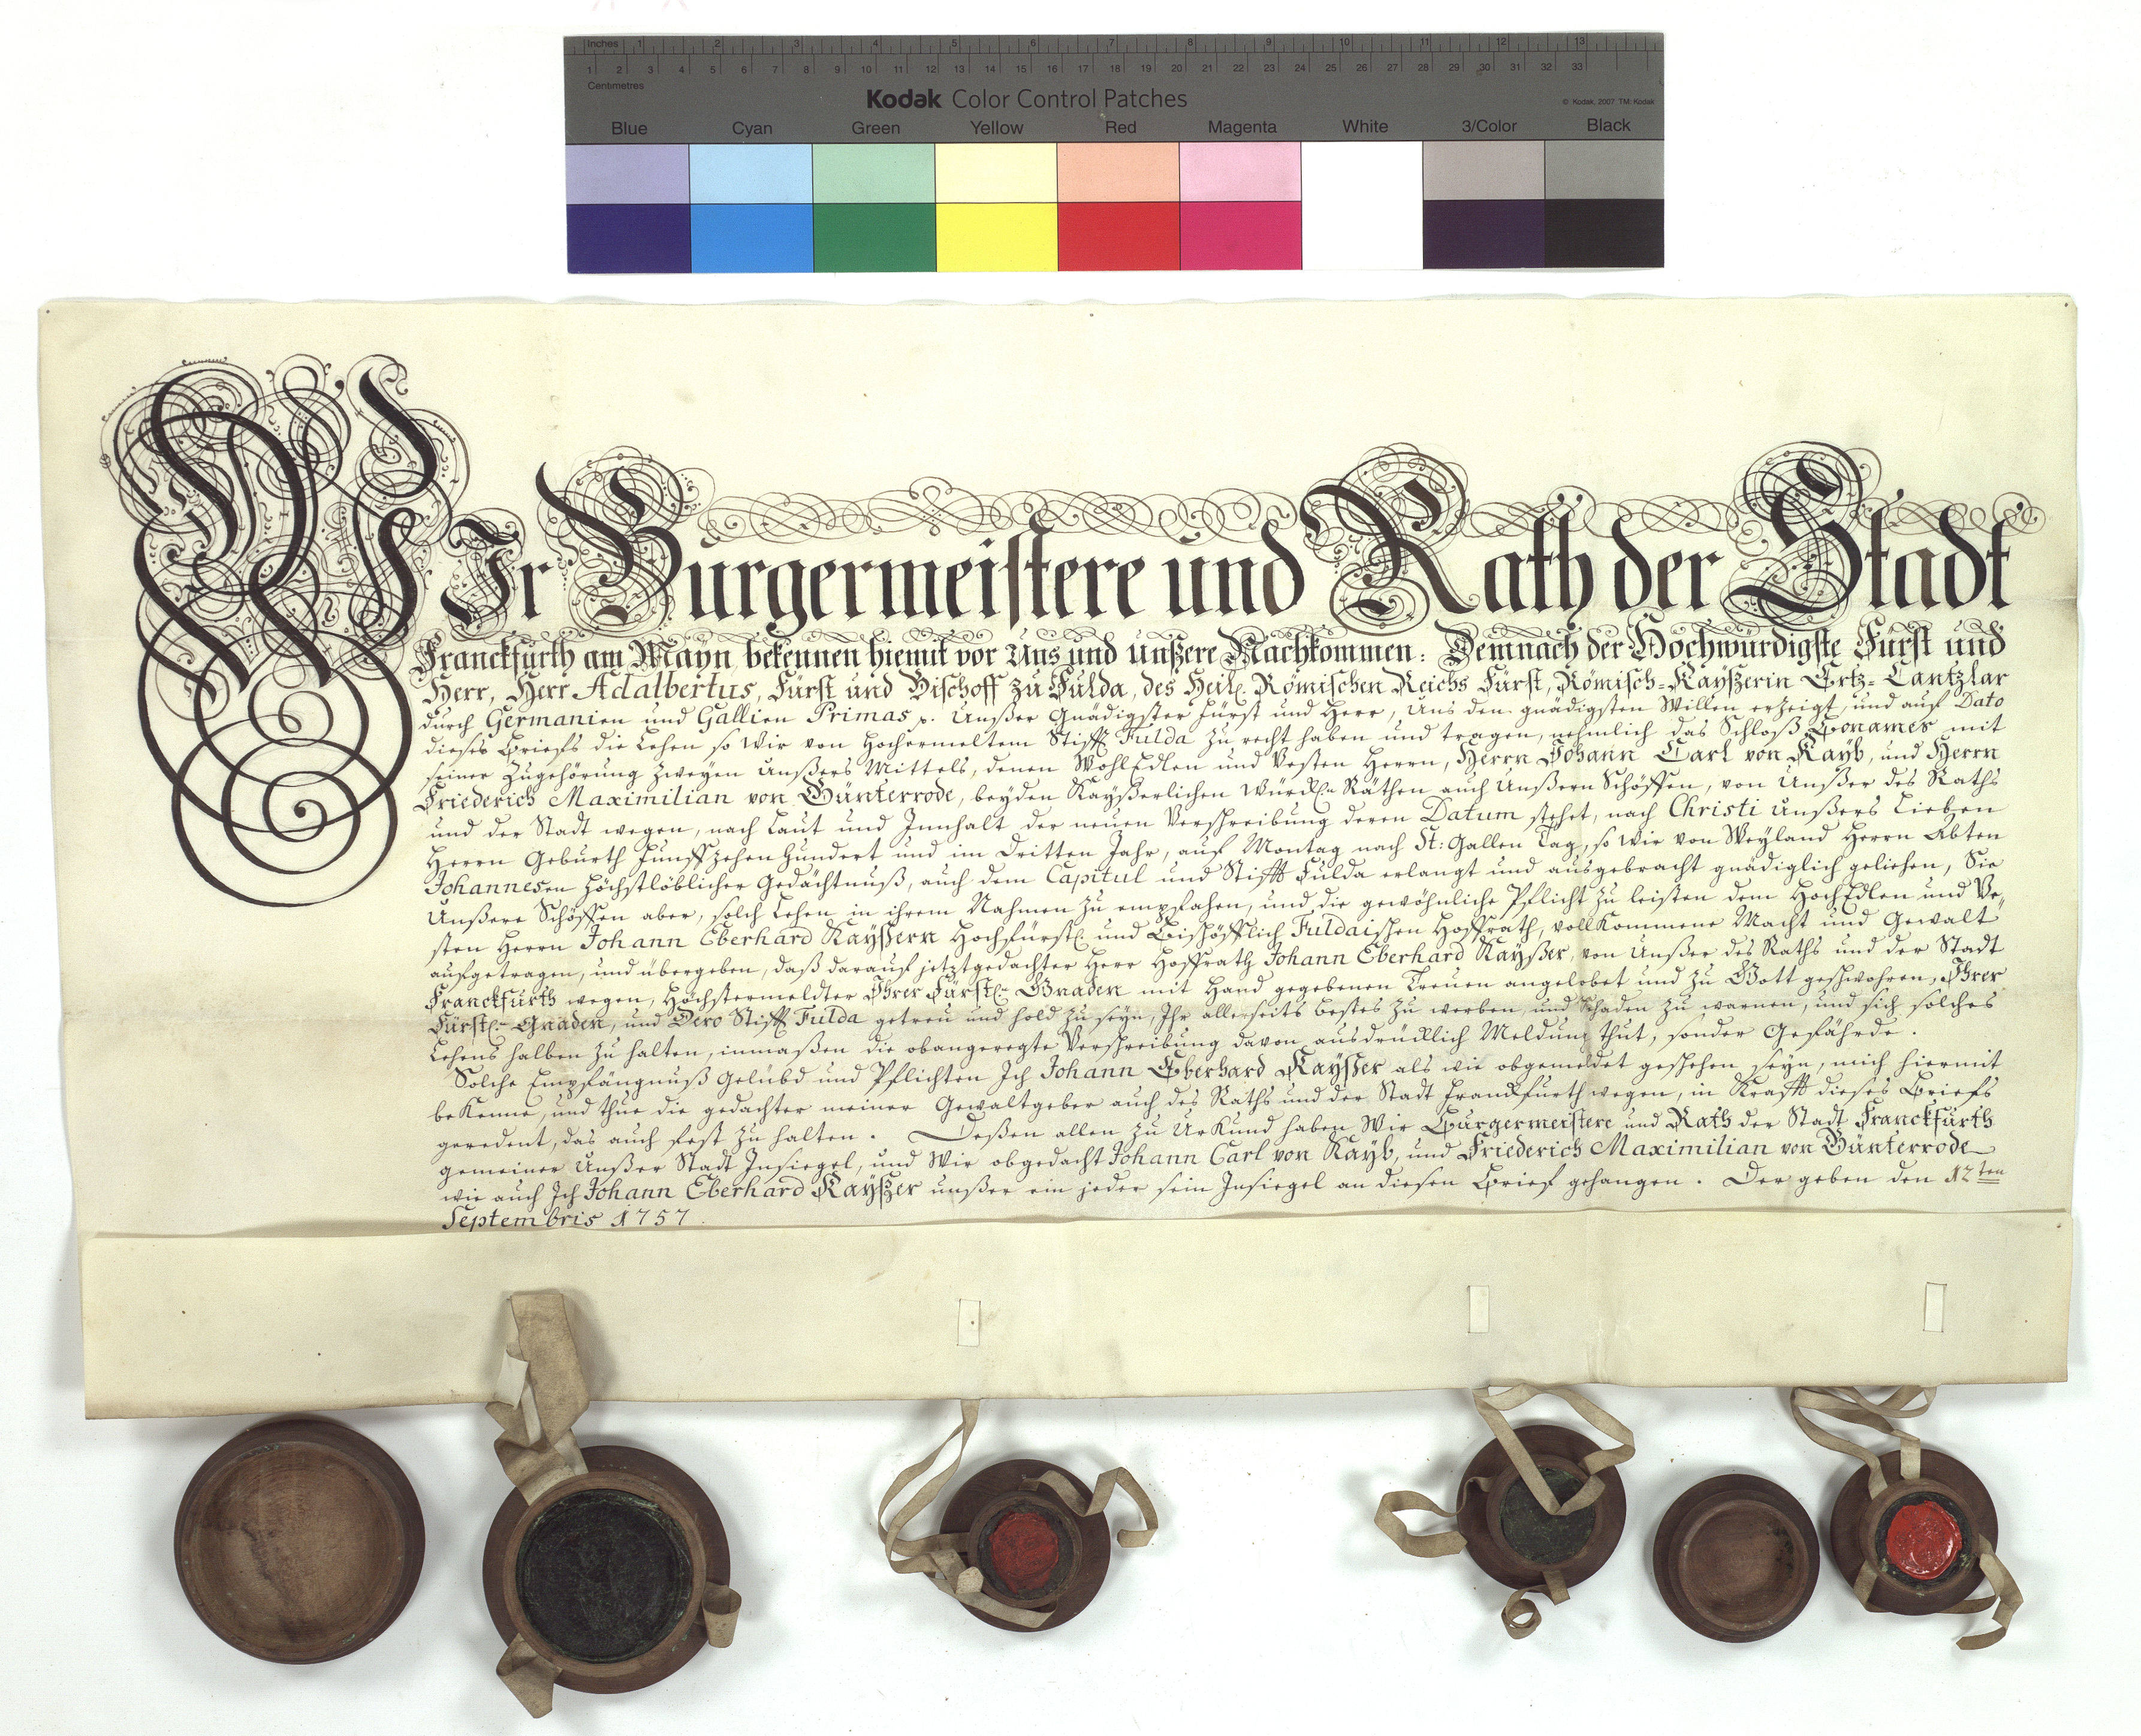 Inches 1 2 3 4 5 6 7 8 9 10 11 12 13
1 2 3 4 5 6 7 8 9 10 11 12 13 14 15 16 17 18 19 20 21 22 23 24 25 26 27 28 29 30 31 32 33
Centimetres
Kodak Color Control Patches
© Kodak, 2007 TM: Kodak
Blue Cyan Green Yellow Red Magenta White 3/Color Black
WIr Bürgermeistere und Rath der Stadt
Franckfurth am Mayn bekennen hiemit vor Uns und unßere Nachkommen: Demnach der Hochwürdigste Fürst und
Herr, Herr Adalbertus, Fürst und Bischoff zu Fulda, des Heil. Römischen Reichs Fürst, Römisch-Kayßerin Ertz-Cantzlar
durch Germanien und Gallien Primas p. Unßer Gnädigster Fürst und Herr, Uns den gnädigsten Willen erzeigt, und auf Dato
dieses Briefs die Lehen so Wir von Hochermeltem Stifft Fulda zu recht haben und tragen, nehmlich das Schloß Bonames mit
seiner Zugehörung zweyen Unßers Mittels, denen WohlEdlen und Vesten Herrn, Herrn Johann Carl von Kayb, und Herrn
Friederich Maximilian von Günterrode, beyden Kayßerlichen Würckl. Räthen auch Unßern Schöffen, von Unßer des Raths
und der Stadt wegen, nach Laut und Innhalt der neuen Verschreibung deren Datum stehet, nach Christi Unßers Lieben
Herrn Geburth Funffzehen hundert und im Dritten Jahr, auf Montag nach St: Gallen Tag, so Wir von Weyland Herrn Abten
Johannesen Höchstlöblicher Gedächtnuß, auch dem Capitul und Stifft Fulda erlangt und ausgebracht gnädiglich geliehen, Sie
Unßere Schöffen aber, solch Lehen in ihrem Nahmen zu empfahen, und die gewöhnliche Pflicht zu leisten dem HochEdlen und Ve,,
sten Herrn Johann Eberhard Kayßern Hochfürstl. und Bischöfflich Fuldaischen Hoffrath, vollkommene Macht und Gewalt
aufgetragen, und übergeben, daß darauf jetztgedachter Herr Hoffrath Johann Eberhard Kayßer, von Unßer des Raths und der Stadt
Franckfurth wegen, Höchstermeldter Ihrer Fürstl. Gnaden mit Hand gegebenen Treuen angelobet und zu Gott geschwohren, Ihrer
Fürstl. Gnaden, und Dero Stifft Fulda getreu und hold zu seyn, Ihr allerseits bestes zu werben, und Schaden zu warnen, und sich solches
Lehens halben zu halten, inmaßen die obangeregte Verschreibung davon ausdrücklich Meldung thut, sonder Gefährde.
Solche Empfängnuß Gelübd und Pflichten Ich Johann Eberhard Kayßer als wie obgemeldet geschehen seyn, mich hiermit
bekenne, und thue die gedachter meiner Gewaltgeber auch des Raths und der Stadt Franckfurth wegen, in Krafft dieses Briefs
geredent, das auch fest zu halten. Deßen allen zu Urkund haben Wir Burgermeistere und Rath der Stadt Franckfurth
gemeiner Unßer Stadt Insiegel, und Wir obgedacht Johann Carl von Kayb, und Friederich Maximilian von Günterrode
wie auch Ich Johann Eberhard Kayßer unßer ein jeder sein Insiegel an diesen Brief gehangen. Der geben den 12ten
Septembris 1757.